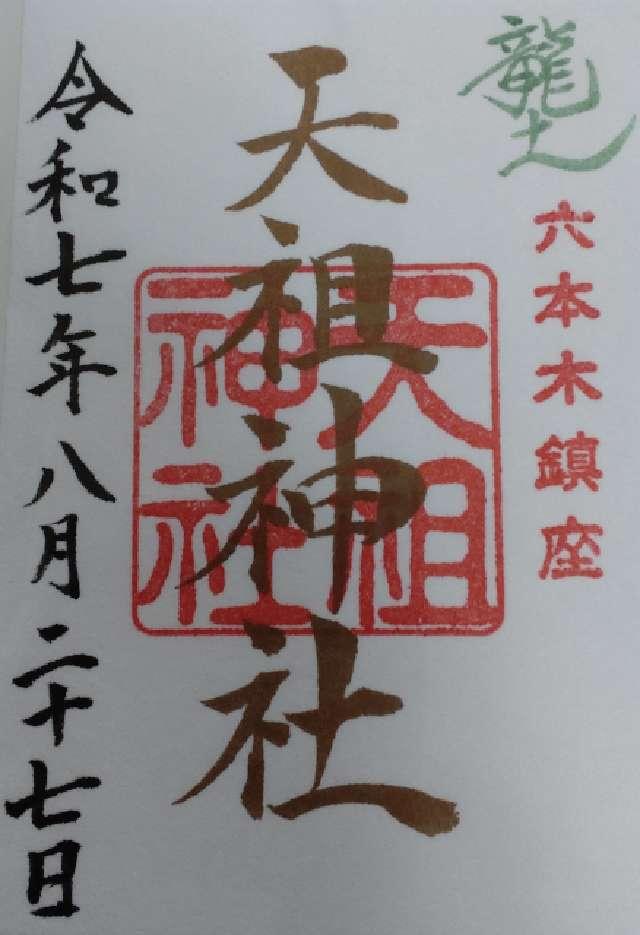 龍土
六本木鎮座
天祖神社
天祖神社
令和七年八月二十七日